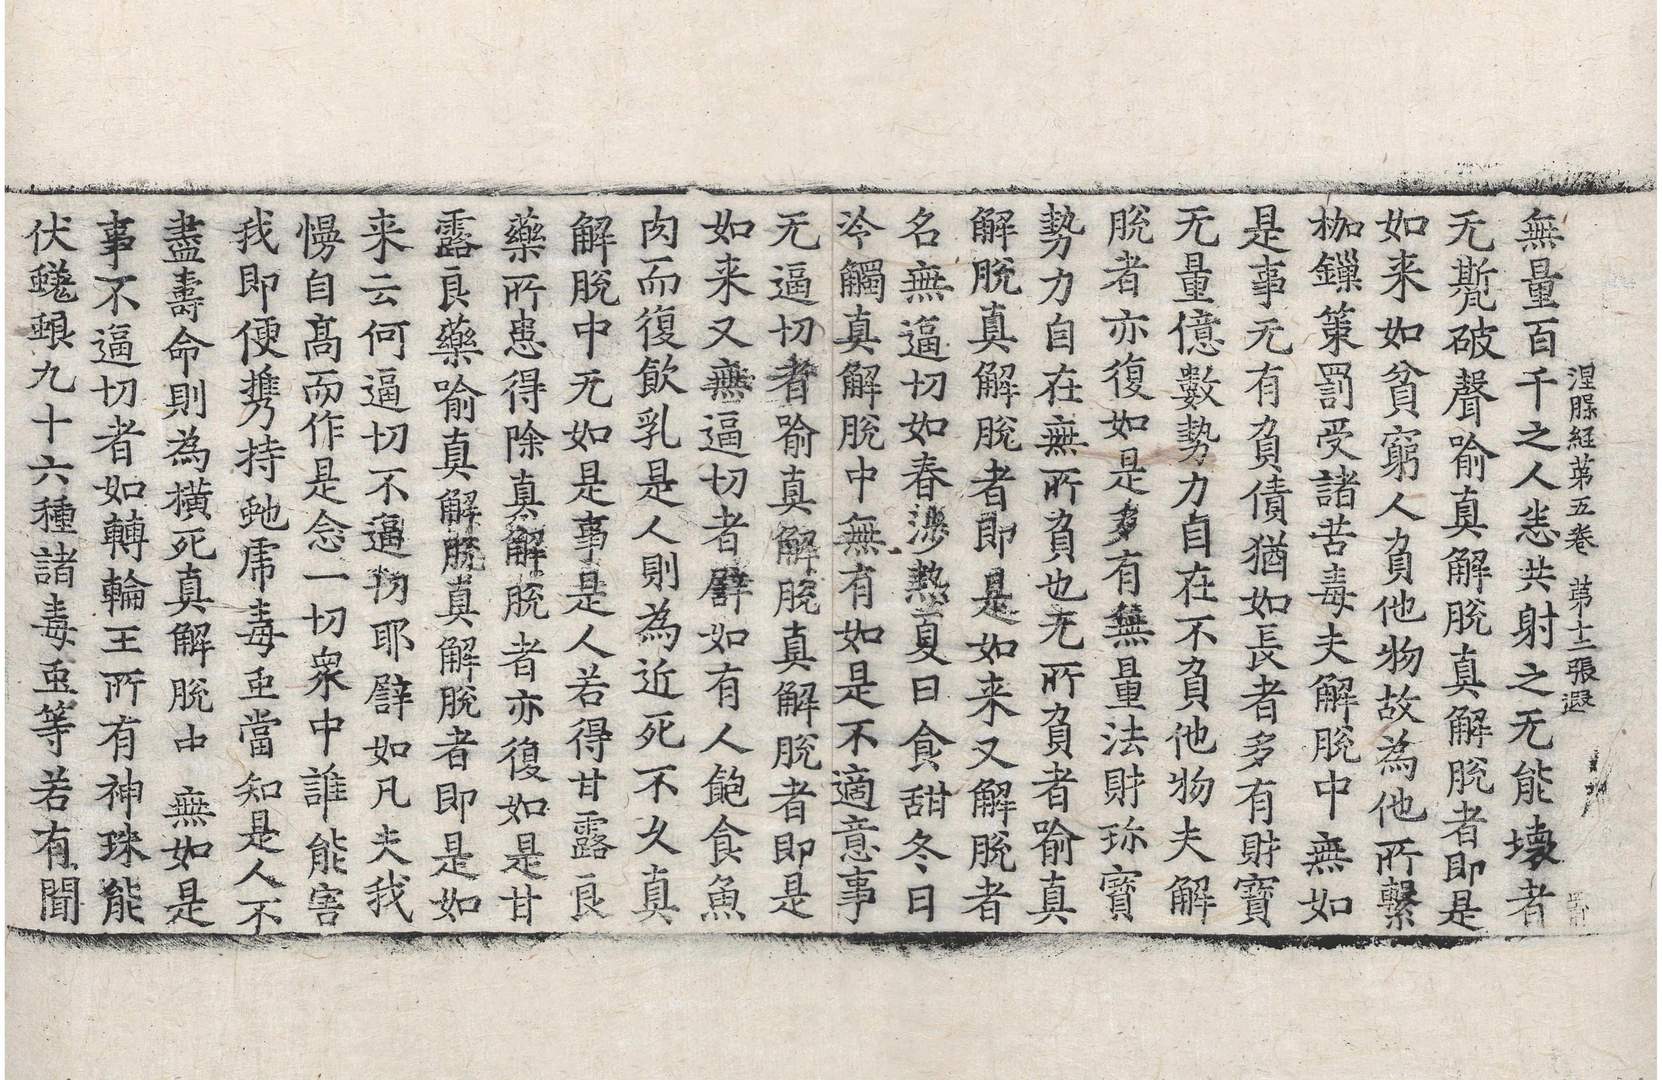 涅槃経第五卷　第十二張　遐
無量百千之人悉共射之无能壞者
无㽄破聲喻真解脫真解脫者即是
如来如貧窮人負他物故為他所繫
枷鏁策罰受諸苦毒夫解脫中無如
是事无有負債猶如長者多有財寶
无量億數勢力自在不負他物夫解
脫者亦復如是多有無量法財珎寶
勢力自在無所負也无所負者喻真
解脫真解脫者即是如来又解脫者
名無逼切如春涉熱夏日食甜冬日
冷觸真解脫中無有如是不適意事
无逼切者喻真解脫真解脫者即是
如来又無逼切者譬如有人飽食魚
肉而復飲乳是人則為近死不久真
解脫中无如是事是人若得甘露良
藥所患得除真解脫者亦復如是甘
露良藥喻真解脫真解脫者即是如
来云何逼切不逼切耶譬如凡夫我
慢自髙而作是念一切衆中誰能害
我即便擕持虵虎毒䖝當知是人不
盡壽命則為橫死真解脫中無如是
事不逼切者如轉輪王所有神珠能
伏蜣蜋九十六種諸毒䖝等若有聞